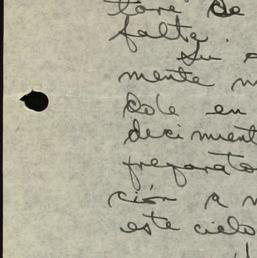 tore de
falta.
Su
mente
dole en
decimient
preparato
ción a
este ciclo